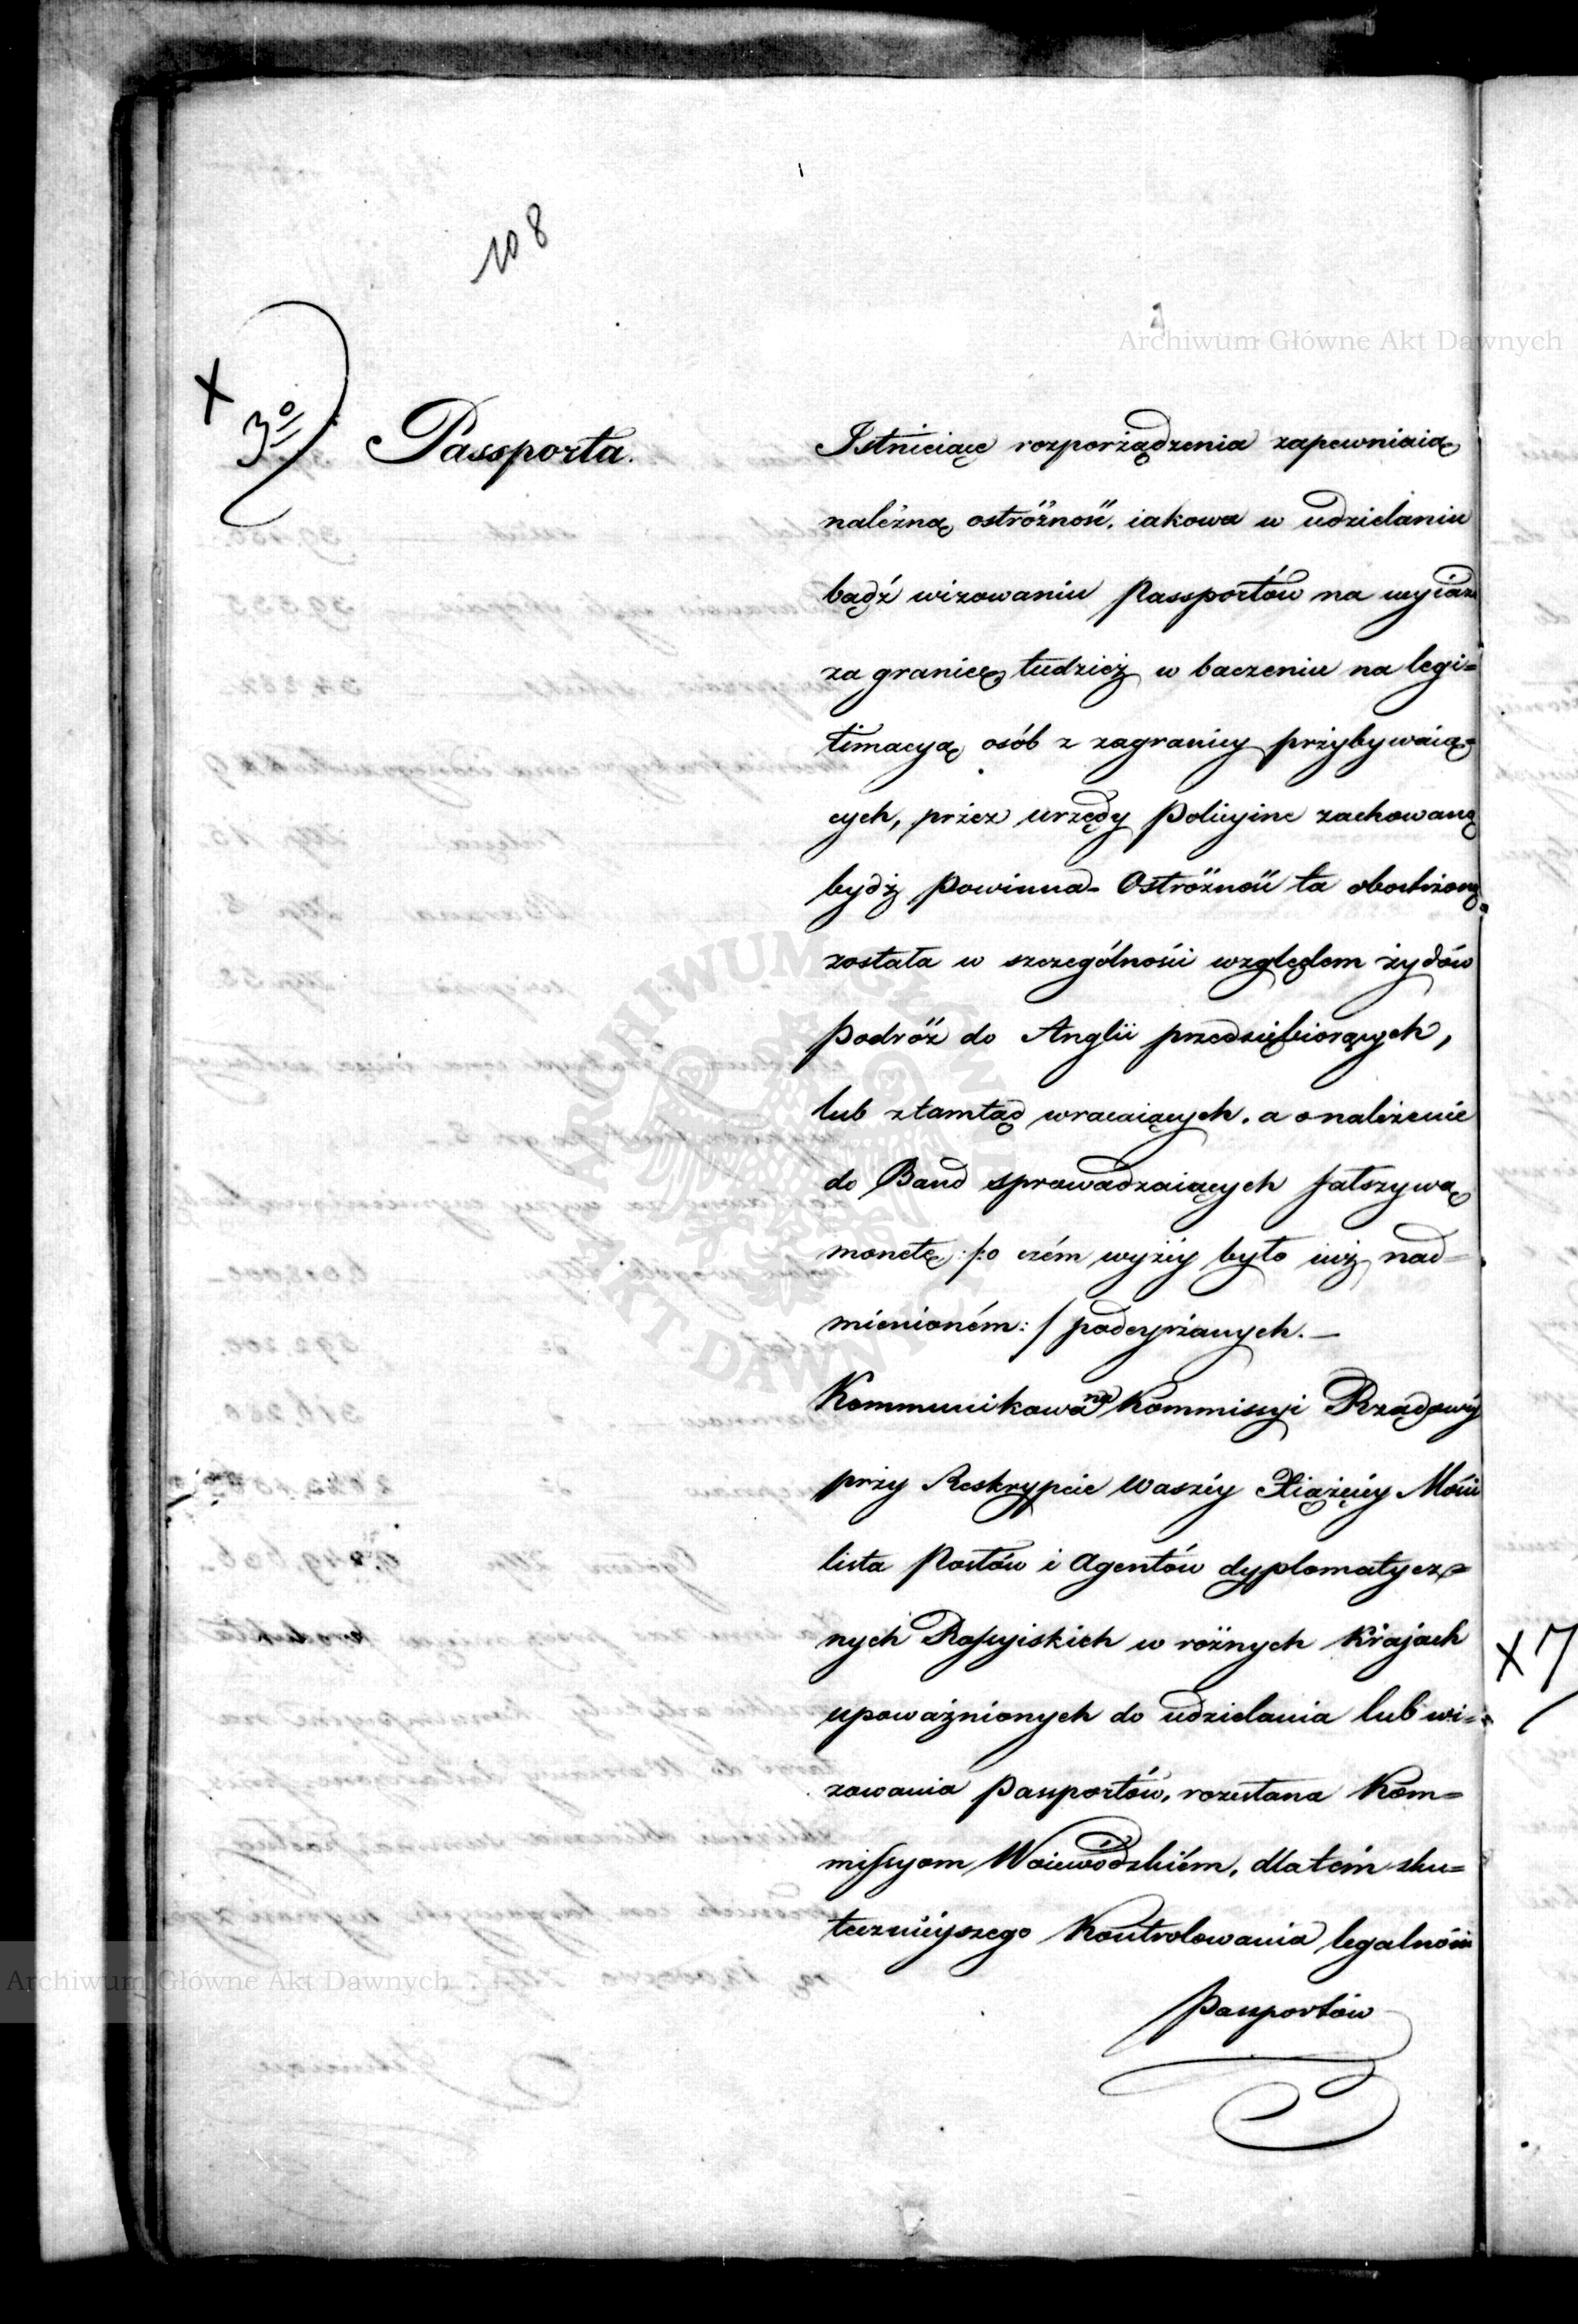 108
Archiwum Główne Akt Dawnych
X
3º
Passporta.
Istnieiące rozporządzenia zapewniaią
należną ostróżność, iakowa w udzielaniu
bądź wizowaniu Passportów na wyiazd
za granicę tudzież w baczeniu na legi=
timacyą osób z zagranicy przybywaią=
cych, przez urzędy Policyine zachowaną
bydź powinna - Ostróżność ta obostrzoną
została w szczególności względem żydów
podróż do Anglii przedsiębiorących,
lub ztamtąd wracaiących, a o należenie
do Band sprowadzaiących fałszywą
monetę /:o czém wyżéy było iuż nad=
mienioném:/ podeyrzanych. —
Kommunikowana Kommissyi Rządowéy
przy Reskrypcie Waszéy Xiążęcéy Mości
lista Posłów i Agentów dyplomatycz=
nych Rossyiskich w różnych Krajach
upoważnionych do udzielania lub wi=
zowania Passportów, rozesłana Kom=
missyom Woiewódzkiém, dla tém sku=
tecznieyszego Kontrolowania legalności
Passportów
X 7
ARCHIWUM GŁÓWNE AKT DAWNYCH
Archiwum Główne Akt Dawnych